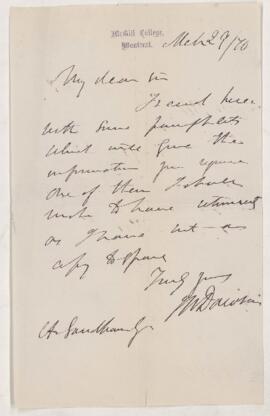 McGill College,
Montreal.
Mch 29/70
My dear sir
I send here
with some pamphlets
which will give the
information you require
One of them I should
wish to have returned
as I have not a
copy to spare
Truly yours
JW Dawson
A Sandham